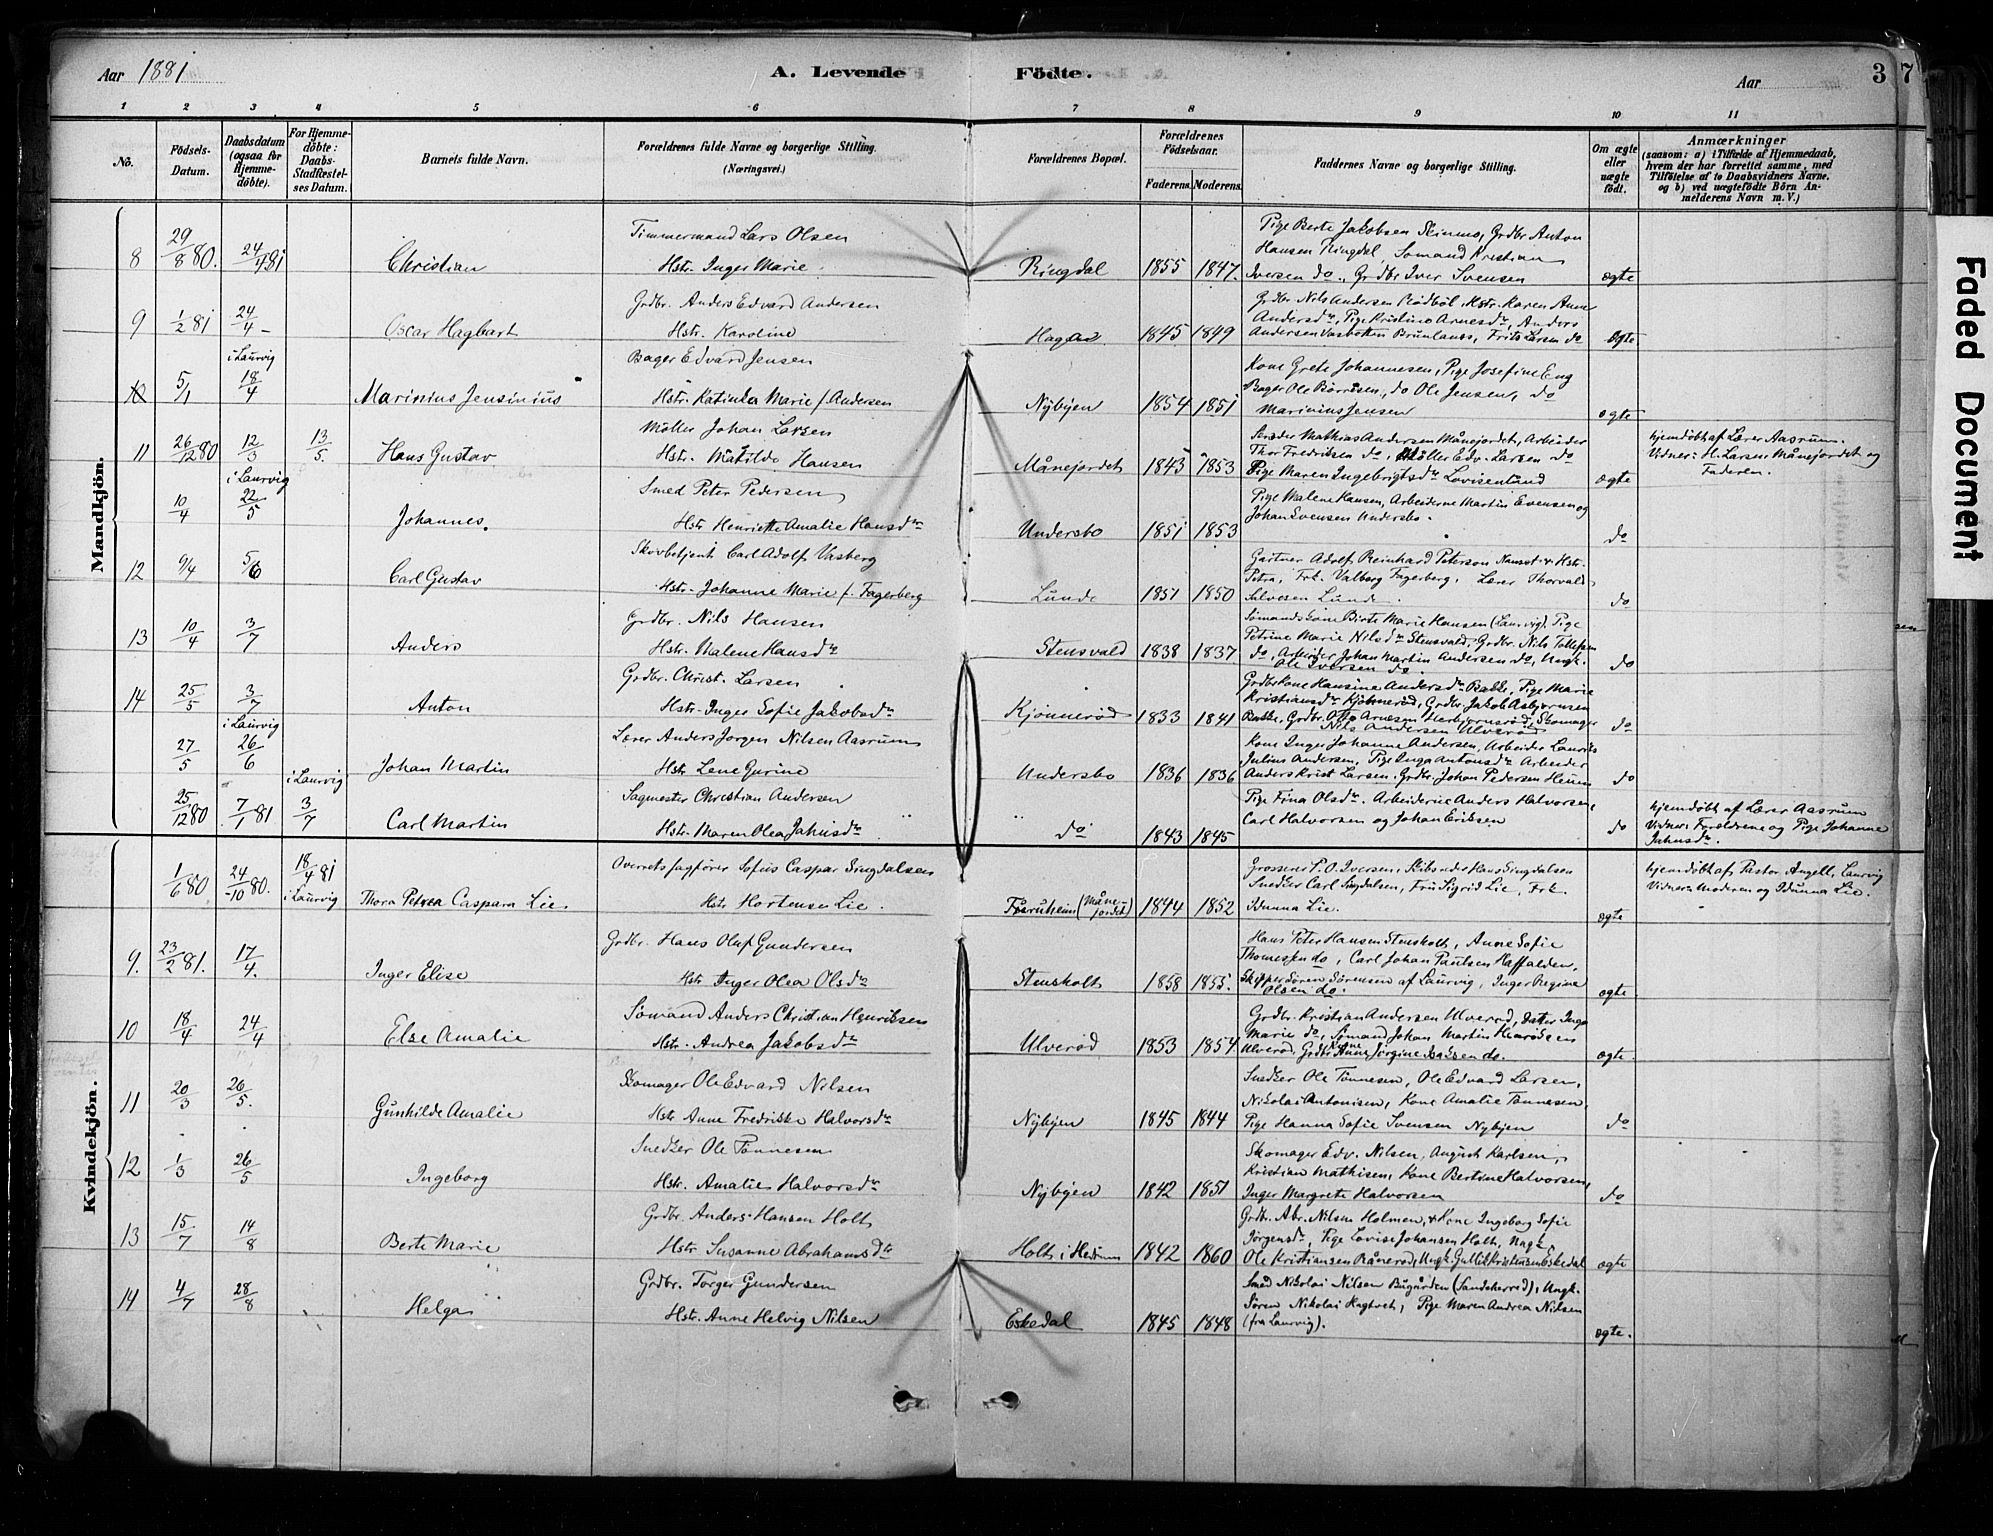 Aar 1881
A. Levende Födte.
Aar
37
1 2 3 4 5 6 7 8 9 10 11
No.
Födsels-Datum.
Daabsdatum (ogsaa for Hjemme-döbte).
For Hjemme-döbte: Daabs-Stadfæstel-ses Datum.
Barnets fulde Navn.
Forældrenes fulde Navne og borgerlige Stilling. (Næringsvei.)
Forældrenes Bopæl.
Forældrenes Födselsaar.
Faderens. Moderens.
Faddernes Navne og borgerlige Stilling.
Om ægte eller uægte födt.
Anmærkninger
(saasom: a) i Tilfælde af Hjemmedaab, hvem der har forrettet samme, med Tilföielse af to Daabsvidners Navne. og b) ved uægtefödte Börn Anmelderens Navn m. V.)
Mandkjön.
8 29/8 80. 24/4 81 Christian
Timmermand Lars Olsen
Hstr. Inger Marie
Ringdal 1855 1847.
Pige Berte Jakobsen Skinmo, Grdbr Anton
Hansen Ringdal, Sömand Kristian
Iversen do, Grdbr Iver Svensen
ægte
9 1/2 81 24/4 – Oscar Hagbart
Grdbr. Anders Edvard Andersen
Hstr. Karoline
Hagen 1845 1849
Grdbr Nils Andersen Rödböl, Hstr. Karen Anne
Andersdtr, Pige Kristine Arnesdtr, Anders
Andersen Vasbotten Brunlanes, Frits Larsen do
ægte
10 5/1 i Laurvig 18/4 Marinius Jensinius
Bager Edvard Jensen
Hstr. Katinka Marie f. Andersen
Nybyen 1854 1851
Kone Grete Johannesen, Pige Josefine Eng
Bager Ole Börresen, do Ole Jensen, do
Marinius Jensen
ægte
11 26/12 80 12/3 13/5. Hans Gustav
Möller Johan Larsen
Hstr. Matilde Hansen
Månejordet 1843 1853
Mathias Andersen Månejordet, Arbeider
Thor Fredriksen do, Möller Edv. Larsen do
Pige Maren Ingebrigtsdtr Lovisenlund
ægte
hjemdöbt af Lærer Aasrum.
Vidner: H. Larsen Månejordet og
Faderen.
10/4 i Laurvig 22/5 Johannes.
Smed Peter Pedersen
Hstr Henriette Amalie Hansdtr
Undersbo 1851 1853
Pige Malene Hansen, Arbeiderne Martin Evensen og
Johan Svensen Undersbo.
do
12 9/4 5/6 Carl Gustav
Skovbetjent Carl Adolf Vasberg
Hstr. Johanne Marie f. Fagerberg
Lunde 1851 1850
Gartner Adolf Reinhard Peterson Nanset & Hstr.
Petra, Frk. Valborg Fagerberg, Lærer Thorvald
Salvesen Lunde.
do
13 10/4 3/7 Anders
Grdbr. Nils Hansen
Hstr. Malene Hansdtr
Stensvald 1838 1837
Sömandskone Birte Marie Hansen (Laurvig). Pige
Petrine Marie Nilsdtr Stensvald, Grdbr. Nils Tollefsen
do, Arbeider Johan Martin Andersen do, Ungk.
Ole Iversen do
do
14 25/5 3/7 Anton
Grdbr. Christ. Larsen
Hstr. Inger Sofie Jakobsdtr
Kjönneröd 1833 1841
Grdbrkone Hansine Andersdtr Bakke, Pige Marie
Kristiansdtr Kjönneröd, Grdbr. Jakob Asbjörnsen
Bakke, Grdbr. Otto Arnesen Herbjörnsröd, Skomager
Nils Andersen Ulveröd
do
27/5 i Laurvig 26/6 Johan Martin
Lærer Anders Jörgen Nilsen Aasrum
Hstr Lene Gurine
Undersbo 1836 1836
Kone Inger Johanne Andersen, Arbeider
Julius Andersen, Pige Inga Antonsdtr Arbeider
Anders Krist Larsen. Grdbr. Johan Pedersen
do
25/12 80 7/1 81 i Laurvig 3/7 Carl Martin
Sagmester Christian Andersen
Hstr. Maren Olea Jahnsdtr
do 1843 1845
Pige Fina Olsdtr. Arbeiderne Anders Halvorsen,
Carl Halvorsen og Johan Eriksen
do
hjemdöbt af Lærer Aasrum
Vidner: Forældrene og Pige Johanne
Jahnsdtr.
Kvindekjön.
1/6 80 24/10 80. 18/4 81 i Laurvig Thora Petrea Caspara Lie
Overretssagförer Sofus Caspar Singdalsen
Hstr Hortense Lie.
Furuheim (Månejordet) 1844 1852
Grosserer P. O. Iversen, Skibsreder Hans Singdalsen
Snedker Carl Singdalsen, Fru Sigrid Lie, Frk.
Idunna Lie.
ægte
hjemdöbt af Pastor Angell, Laurvig
Vidner: Moderen og Idunna Lie.
9. 23/2 81. 17/4. Inger Elise
Grdbr. Hans Oluf Gundersen
Hstr Inger Olea Olsdtr
Stensholt 1858 1855.
Hans Peter Hansen Stensholt, Anne Sofie
Thomesen do, Carl Johan Paulsen Haffalden,
Skipper Sören Sörensen af Laurvig, Inger Regine
Olsen do.
ægte
10 18/4 24/4 Else Amalie
Sömand Anders Christian Henriksen
Hstr. Andrea Jakobsdtr
Ulveröd 1853 1854
Grdbr. Kristian Andersen Ulveröd, Datter Inga
Marie do, Sömand Johan Martin Henriksen
Ulveröd, Grdbr. Kone Anne Jörgine Isaksen do.
ægte.
11 20/3 26/5. Gunhilde Amalie
Skomager Ole Edvard Nilsen
Hstr Anne Fredrikke Halvorsdtr
Nybyen 1845 1844
Snedker Ole Tönnesen, Ole Edvard Larsen,
Nikolai Antonisen, Kone Amalie Tönnesen,
Pige Hanna Sofie Svensen Nybyen
do
12 1/3 26/5 Ingeborg
Snedker Ole Tönnesen
Hstr. Amalie Halvorsdtr
Nybyen 1842 1851
Skomager Edv. Nilsen, August Karlsen,
Kristian Mathisen, Kone Bertine Halvorsen,
Inger Margrete Halvorsen
do
13 15/7 14/8 Berte Marie
Grdbr. Anders Hansen Holt
Hstr Susanne Abrahamsdtr
Holt i Hedrum 1842 1860
Grdbr. Abr. Nilsen Holmen, & Kone Ingeborg Sofie
Jörgensdtr, Pige Lovise Johansen Holt, Ungk.
Ole Kristiansen Råneröd, Ungk. Gullik Kristensen Eskedal
ægte
14 4/7 28/8 Helga
Grdbr. Torger Gundersen
Hstr. Anne Helvig Nilsen
Eskedal 1845 1848
Smed Nikolai Nilsen Bugården (Sandeherred), Ungk.
Sören Nikolai Hagtvet, Pige Maren Andrea Nilsen
(fra Laurvig).
ægte.
Faded Document